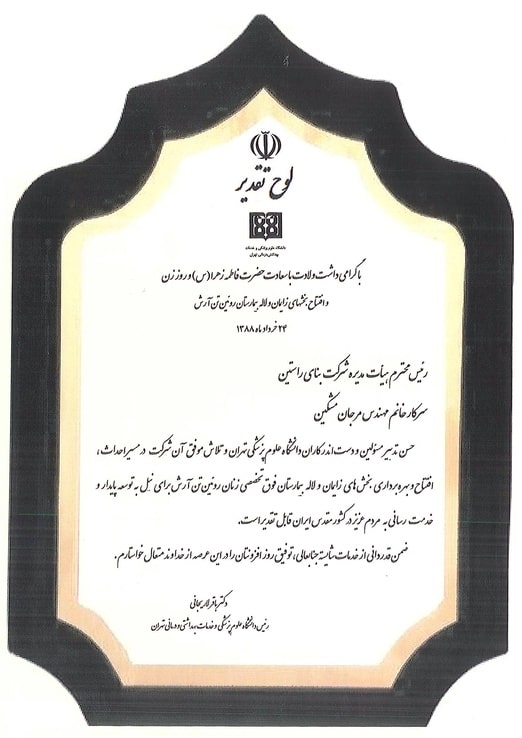 لوح تقدیر
دانشگاه علوم پزشکی و خدمات
بهداشتی درمانی تهران
با گرامی داشت ولادت با سعادت حضرت فاطمه زهرا (س) و روز زن
و افتتاح بخشهای زایمان و لاله بیمارستان روئین تن آرش
۲۴ خرداد ماه ۱۳۸۸
رئیس محترم هیأت مدیره شرکت بنای راستین
سرکار خانم مهندس مرجان مشگین
حسن تدبیر مسئولین و دست اندرکاران دانشگاه علوم پزشکی تهران و تلاش موفق آن شرکت در مسیر احداث،
افتتاح و بهره برداری بخش های زایمان و لاله بیمارستان فوق تخصصی زنان روئین تن آرش برای نیل به توسعه پایدار و
خدمت رسانی به مردم عزیز در کشور مقدس ایران قابل تقدیر است.
ضمن قدردانی از خدمات شایسته جنابعالی، توفیق روز افزونتان را در این عرصه از خداوند متعال خواستارم.
دکتر باقر لاریجانی
رئیس دانشگاه علوم پزشکی و خدمات بهداشتی و درمانی تهران